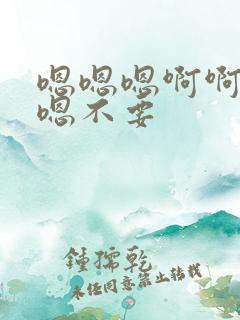 嗯嗯嗯啊啊
嗯不要
鍾孺乾
未经同意禁止转载